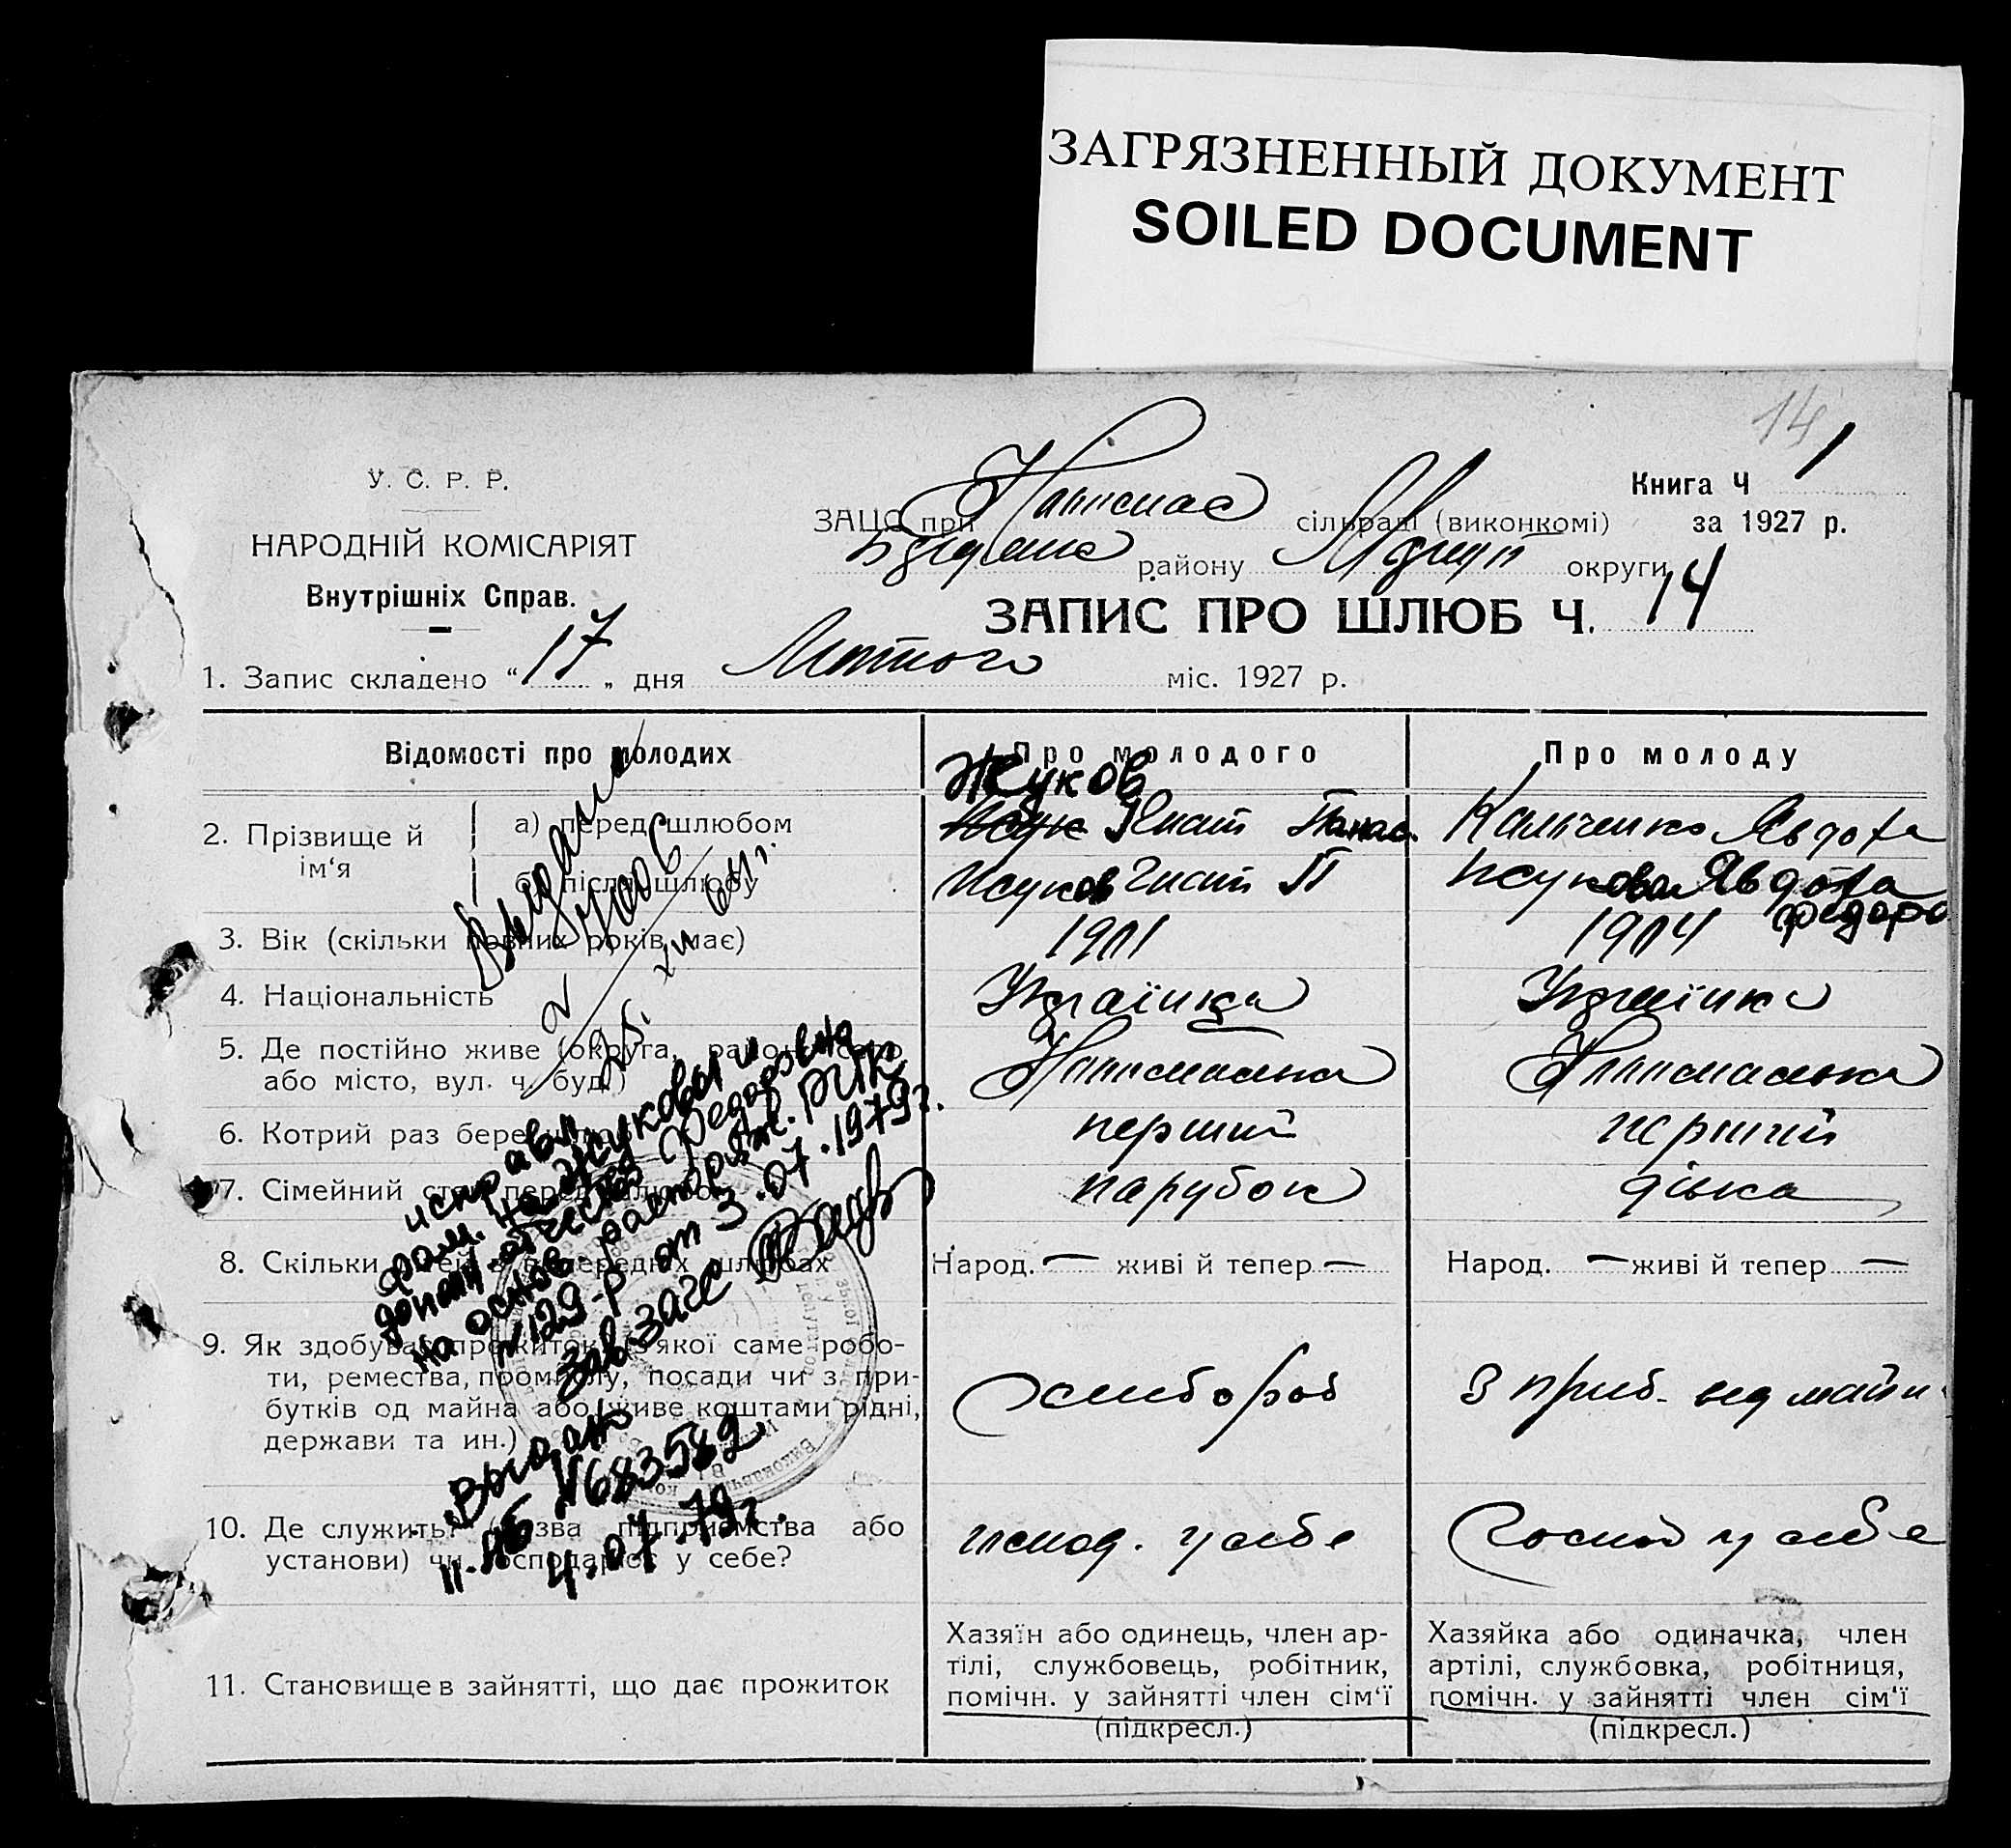 ЗАГРЯЗНЕННЫЙ ДОКУМЕНТ
SOILED DOCUMENT
14
У. С. Р. Р.
НАРОДНІЙ КОМІСАРІЯТ
Внутрішніх Справ.
Книга Ч 1
за 1927 р.
ЗАЦС при сільраді (виконкомі)
району округи
ЗАПИС ПРО ШЛЮБ Ч. 14
1. Запис складено “ 17 „ дня Лютого міс. 1927 р.
Відомості про молодих
Про молодого
Про молоду
2. Прізвище й ім‘я
а) перед шлюбом
Жуков
Жук Гнат Панас
Кальченко Явдоха
б) після шлюбу
Жуков Гнат П
Жукова Явдоха
Федоро
3. Вік (скільки повних років має)
1901
1904
4. Національність
Українка
Українка
5. Де постійно живе (округа, район, село
або місто, вул. ч. буд.)
6. Котрий раз бере шлюб
перший
перший
7. Сімейний стан перед шлюбом
парубок
дівка
8. Скільки дітей в попередніх шлюбах
Народ. — живі й тепер —
Народ. — живі й тепер —
9. Як здобуває прожиток (з якої саме робо-
ти, ремества, промислу, посади чи з при-
бутків од майна або живе коштами рідні,
держави та ин.)
хлібороб
З приб. від майн
10. Де служить? (назва підприємства або
установи) чи господарює у себе?
господ. у себе
Господ у себе
11. Становище в зайнятті, що дає прожиток
Хазяїн або одинець, член ар-
тілі, службовець, робітник,
помічн. у зайнятті член сім‘ї
(підкресл.)
Хазяйка або одиначка, член
артілі, службовка, робітниця,
помічн. у зайнятті член сім‘ї
(підкресл.)
Выдан
25. XII 64 г.
исправл
фам. на Жуковы и
допол. отчество Федоровна
на основ. распоряж. РИК
№129-р от 3.07.1979 г.
зав. загс
Выдано
II-ЯБ №683582
4.07.79 г.